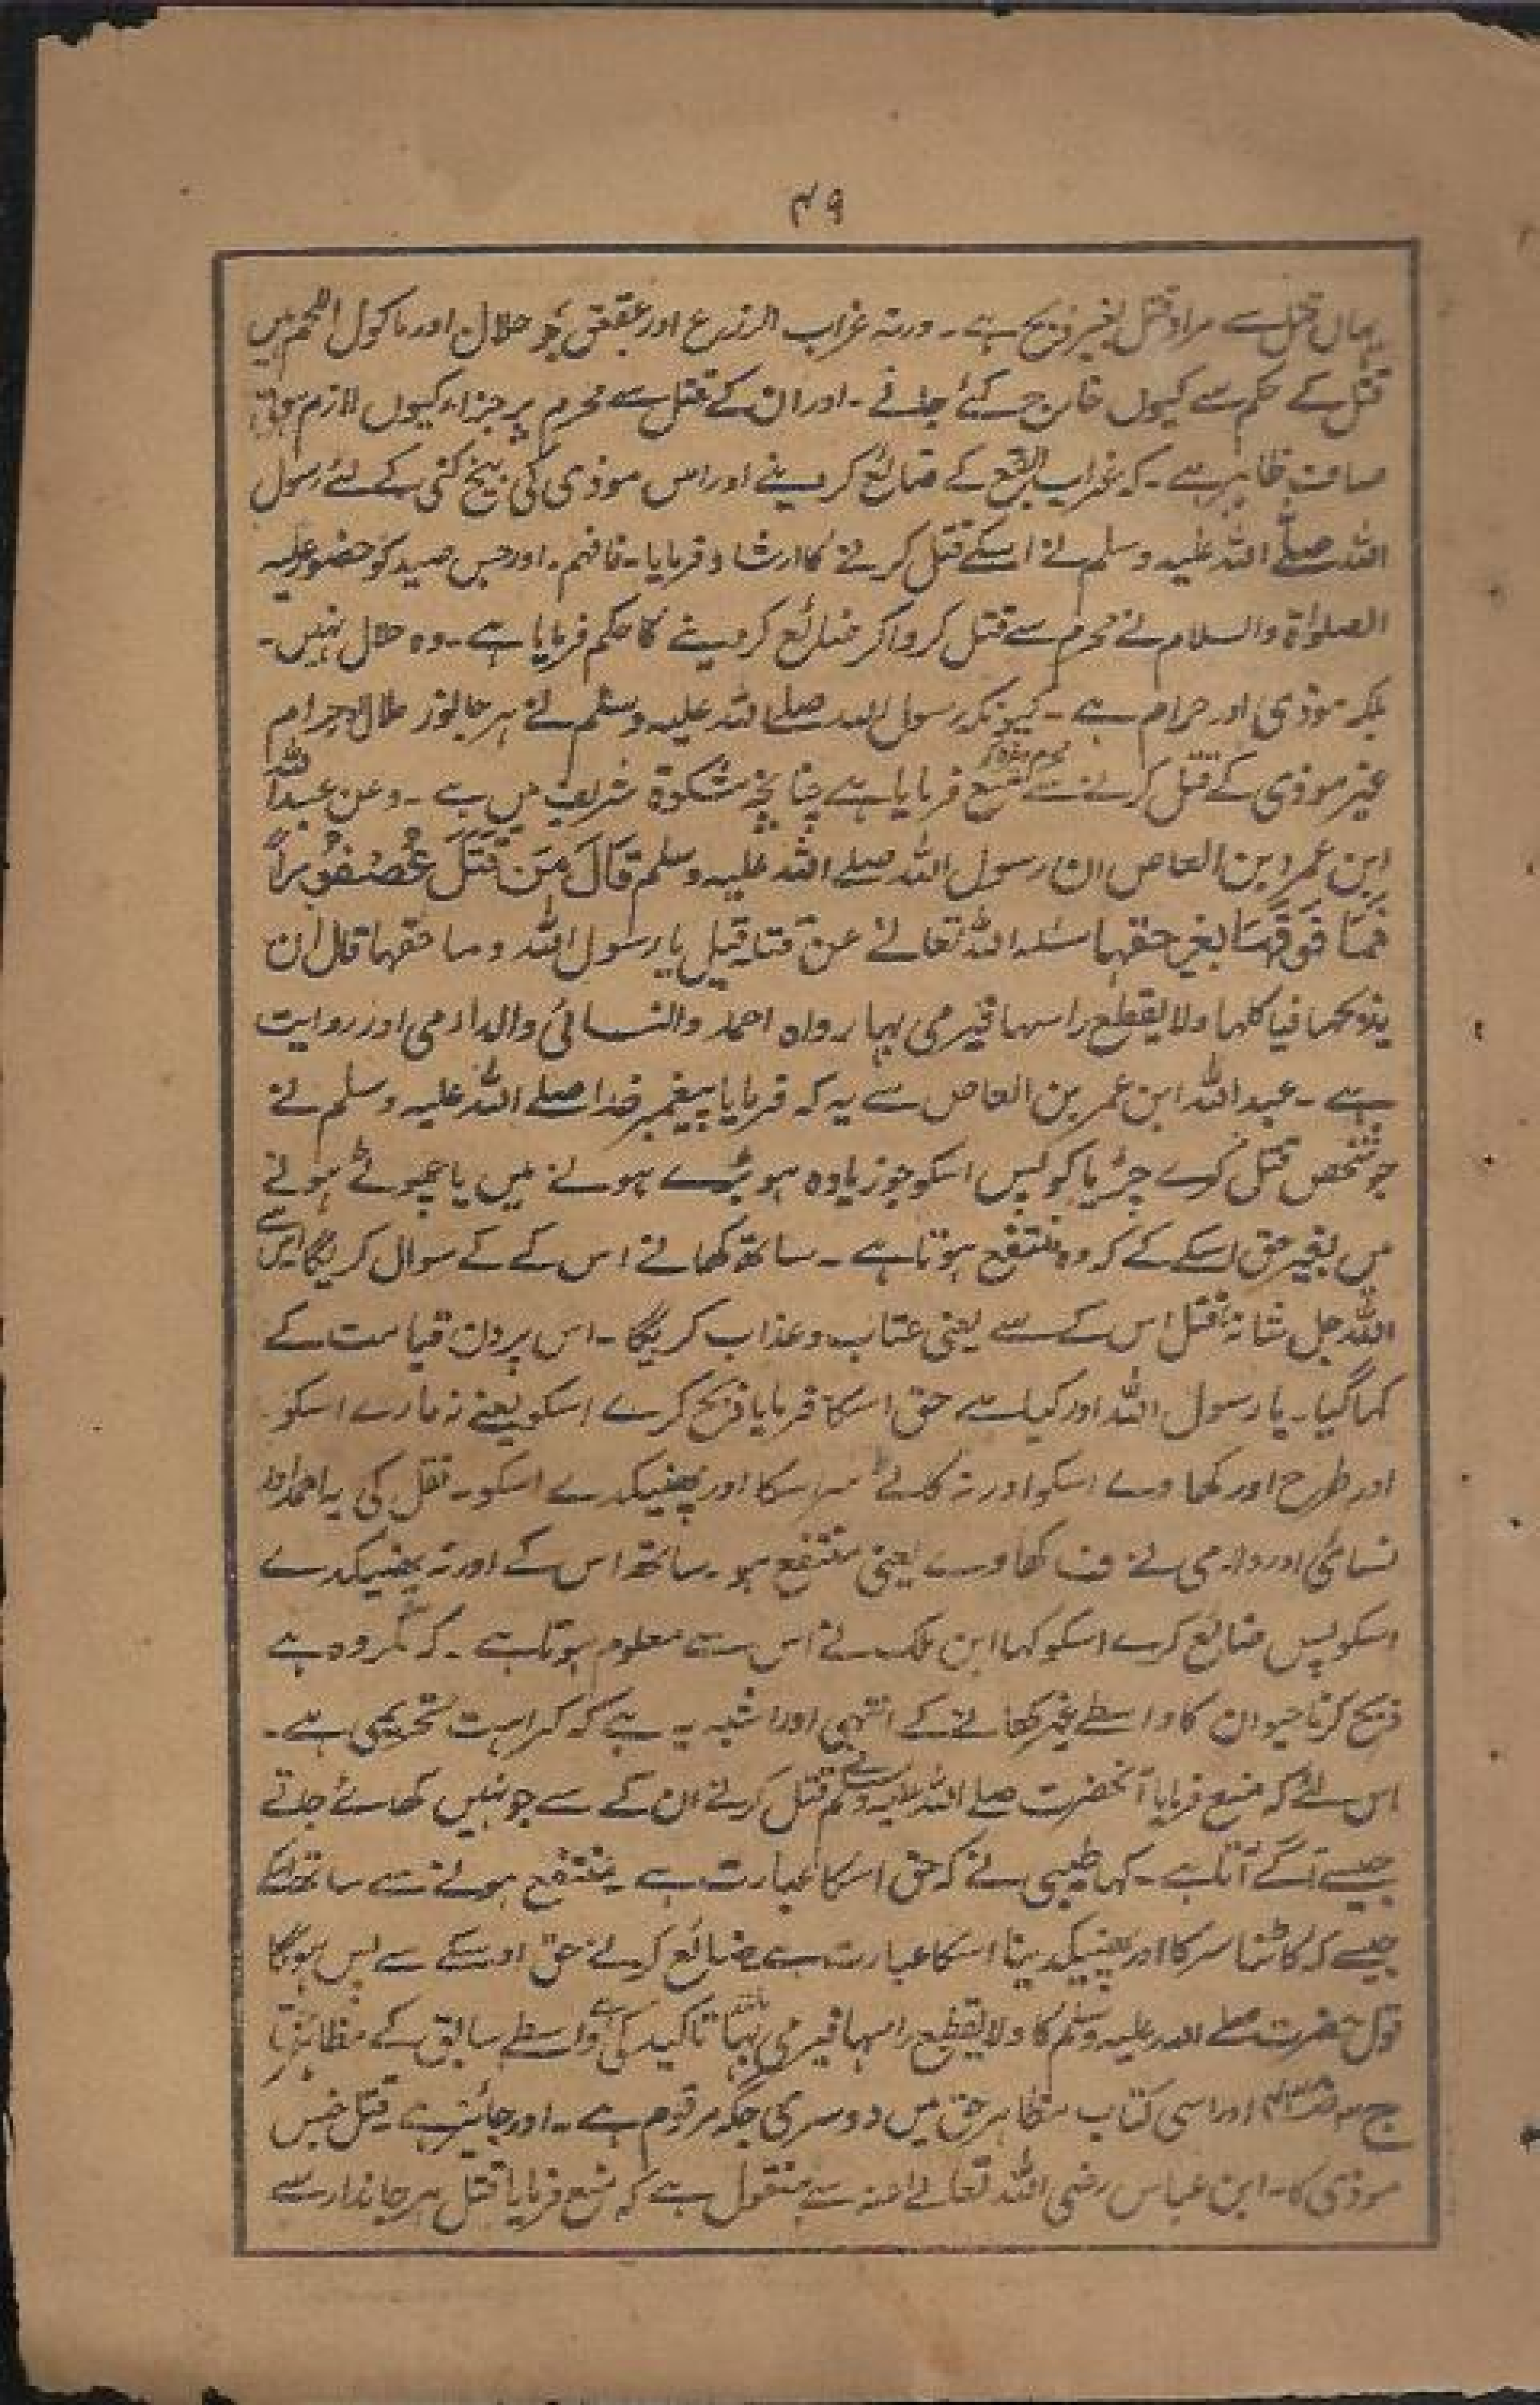 ۴۹
یہاں قتل سے مراد قتل بغیر ذبح ہے۔ ورنہ غراب الزرع اور عقعق جو حلال اور ماکول اللحم ہیں
قتل کے حکم سے کیوں خارج کئے جاتے۔ اور ان کے قتل سے محرم پر جزاء کیوں لازم ہوتی
صاف ظاہر ہے۔ کہ غراب البقع کے ضائع کر دینے اور اس موذی کی بیخ کنی کے لئے رسول
اللہ صلے اللہ علیہ وسلم نے اسکے قتل کرنے کا ارشاد فرمایا۔ فافہم۔ اور جس صید کو حضور علیہ
الصلواۃ والسلام نے محرم سے قتل کروا کر ضائع کر دینے کا حکم فرمایا ہے۔ وہ حلال نہیں۔
بلکہ موذی اور حرام ہے۔ کیونکہ رسول اللہ صلے اللہ علیہ وسلم نے ہر جانور حلال و حرام
غیر موذی کے قتل کرنے سے منع فرمایا ہے چنانچہ مشکوۃ شریف میں ہے۔ وعن عبداللہ
ابن عمرو بن العاص ان رسول اللہ صلے اللہ علیہ وسلم قَالَ مَنَ قَتَلَ عُصْفُوْراً
فَمَا فَوقَہَا بغیر حقہا سئلہ اللہ تعالے عن قتلہ قیل یا رسول اللہ و ما حقہا قال ان
یذبحہا فیاکلہا ولا یقطع راسہا فیرمی بہا رواہ احمد والنسائی والدارمی اور روایت
ہے۔ عبداللہ ابن عمر بن العاص سے یہ کہ فرمایا پیغمبر خدا صلے اللہ علیہ وسلم نے
جو شخص قتل کرے چڑیا کو پس اسکو جو زیادہ ہو بڑے ہونے میں یا چھوٹے ہونے
میں بغیر حق اسکے کہ وہ منتفع ہوتا ہے۔ ساتھ کھانے اس کے کے سوال کریگا اس سے
اللہ جل شانہ قتل اس کے سے یعنی عتاب و عذاب کریگا۔ اس پر دن قیامت کے
کہا گیا۔ یا رسول اللہ اور کیا ہے حق اسکا فرمایا ذبح کرے اسکو یعنے نہ مارے اسکو
اور طرح اور کھاوے اسکو اور نہ کاٹے سر اسکا اور پھینکدے اسکو۔ نقل کی یہ احمد اور
نسائی اور دارمی نے ف کھاوے یعنی منتفع ہو۔ ساتھ اس کے اور نہ پھینکدے
اسکو پس ضائع کرے اسکو کہا ابن ملک نے اس سے معلوم ہوتا ہے۔ کہ مکروہ ہے
ذبح کرنا حیوان کا واسطے غیر کھانے کے انتہی اور اشبہ یہ ہے کہ کراہت تحریمی ہے۔
اس لئے کہ منع فرمایا آنحضرت صلے اللہ علیہ وسلم نے قتل کرنے ان کے سے جو نہیں کھائے جاتے
جیسے آگے آتا ہے۔ کہا طیبی نے کہ حق اسکا عبارت ہے منتفع ہونے سے ساتھ اسکے
جیسے کہ کاٹنا سر کا اور پھینکدینا اسکا عبارت ہے ضائع کرنے حق اوسکے سے پس ہوگا
قول حضرت صلے اللہ علیہ وسلم کا ولا یقطع راسہا فیرمی بہا تاکید کی واسطے سابق کے
اور اسی کتاب مظاہر حق میں دوسری جگہ مرقوم ہے۔ اور جائز ہے قتل جنس
موذی کا۔ ابن عباس رضی اللہ تعالے عنہ سے منقول ہے کہ منع فرمایا قتل ہر جاندار سے